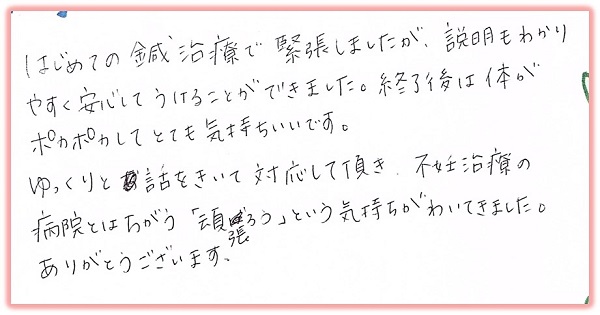 はじめての鍼治療で緊張しましたが、説明もわかり
やすく安心してうけることができました。終了後は体が
ポカポカしてとても気持ちいいです。
ゆっくりと話をきいて対応して頂き、不妊治療の
病院とはちがう「頑張ろう」という気持ちがわいてきました。
ありがとうございます。